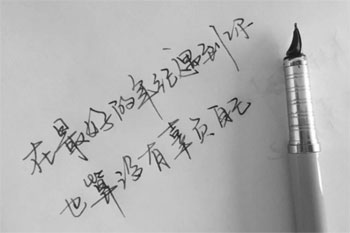 在最好的年纪遇到你
也算没有辜负自己